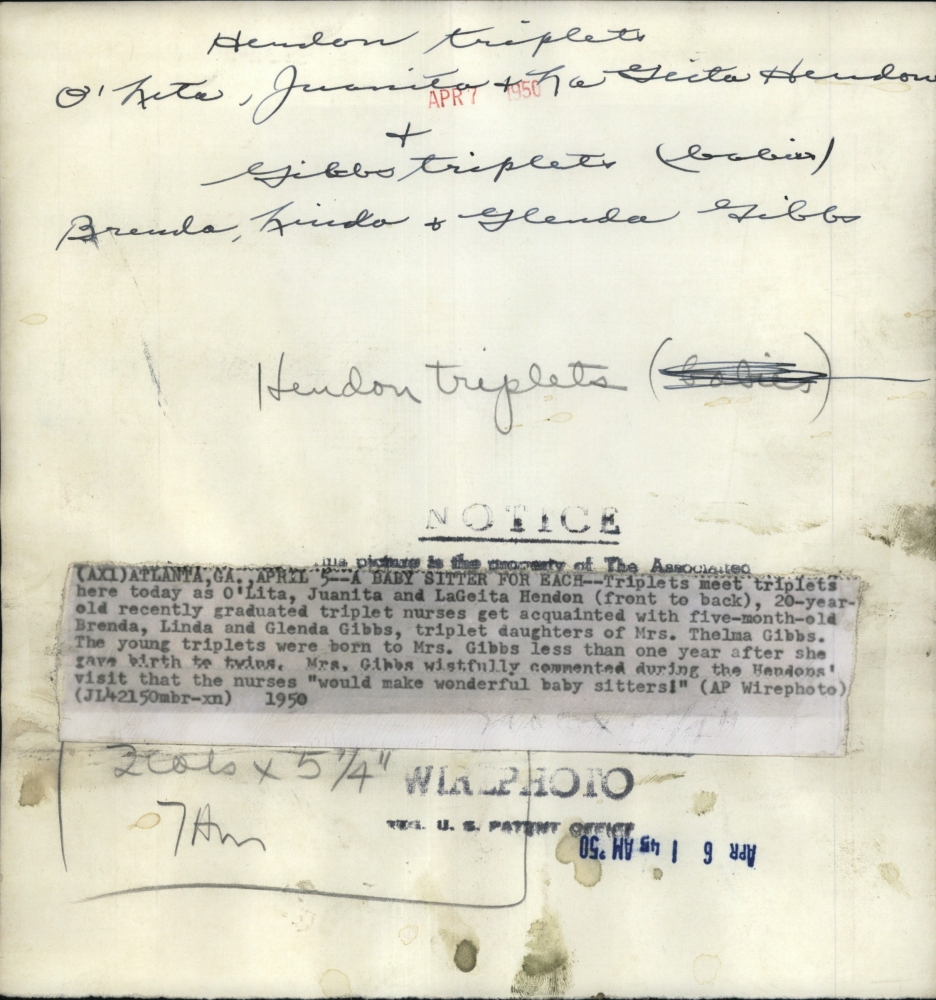 Hendon triplets
O'Lita, Juanita + La Geita Hendon
APR 7 1950
+
Gibbs triplets (babies)
Brenda, Linda & Glenda Gibbs
Hendon triplets (babies)
NOTICE
This picture is the property of The Associated
(AX1)ATLANTA,GA.,APRIL 5--A BABY SITTER FOR EACH--Triplets meet triplets
here today as O'Lita, Juanita and LaGeita Hendon (front to back), 20-year-
old recently graduated triplet nurses get acquainted with five-month-old
Brenda, Linda and Glenda Gibbs, triplet daughters of Mrs. Thelma Gibbs.
The young triplets were born to Mrs. Gibbs less than one year after she
gave birth to twins. Mrs. Gibbs wistfully commented during the Hendons'
visit that the nurses "would make wonderful baby sitters!" (AP Wirephoto)
(JL42150mbr-xn) 1950
2 cols x 5 1/4"
WIREPHOTO
7Hm
REG. U. S. PATENT OFFICE
APR 6 1 45 AM '50